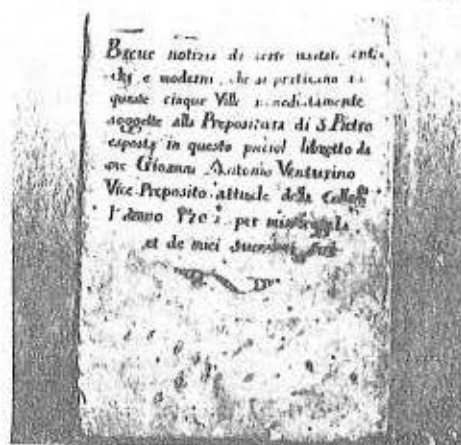 Breue notizia di certe usanze anti-
che, e moderne, che si praticano in
queste cinque Ville immediatamente
soggette alla Prepositura di S. Pietro
esposta in questo picciol libretto da
me Gioanni Antonio Venturino
Vice-Preposito attuale della
l'anno per mia regola
et de miei successori